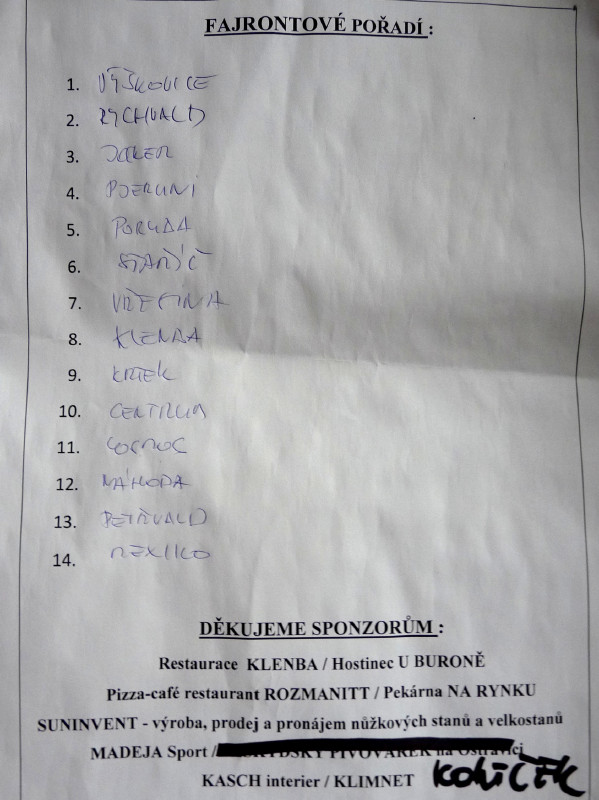 FAJRONTOVÉ POŘADÍ :
1. VÝŠKOVICE
2. RYCHVALD
3. JOKER
4. PJERUNI
5. PORUBA
6. STAŘÍČ
7. VŘESINA
8. KLENBA
9. KRTEK
10. CENTRUM
11.
12. NÁHODA
13. PETŘVALD
14. MEXIKO
DĚKUJEME SPONZORŮM :
Restaurace KLENBA / Hostinec U BURONĚ
Pizza-café restaurant ROZMANITT / Pekárna NA RYNKU
SUNINVENT - výroba, prodej a pronájem nůžkových stanů a velkostanů
MADEJA Sport / PIVOVÁREK na Ostravici
KASCH interier / KLIMNET KOLIČEK